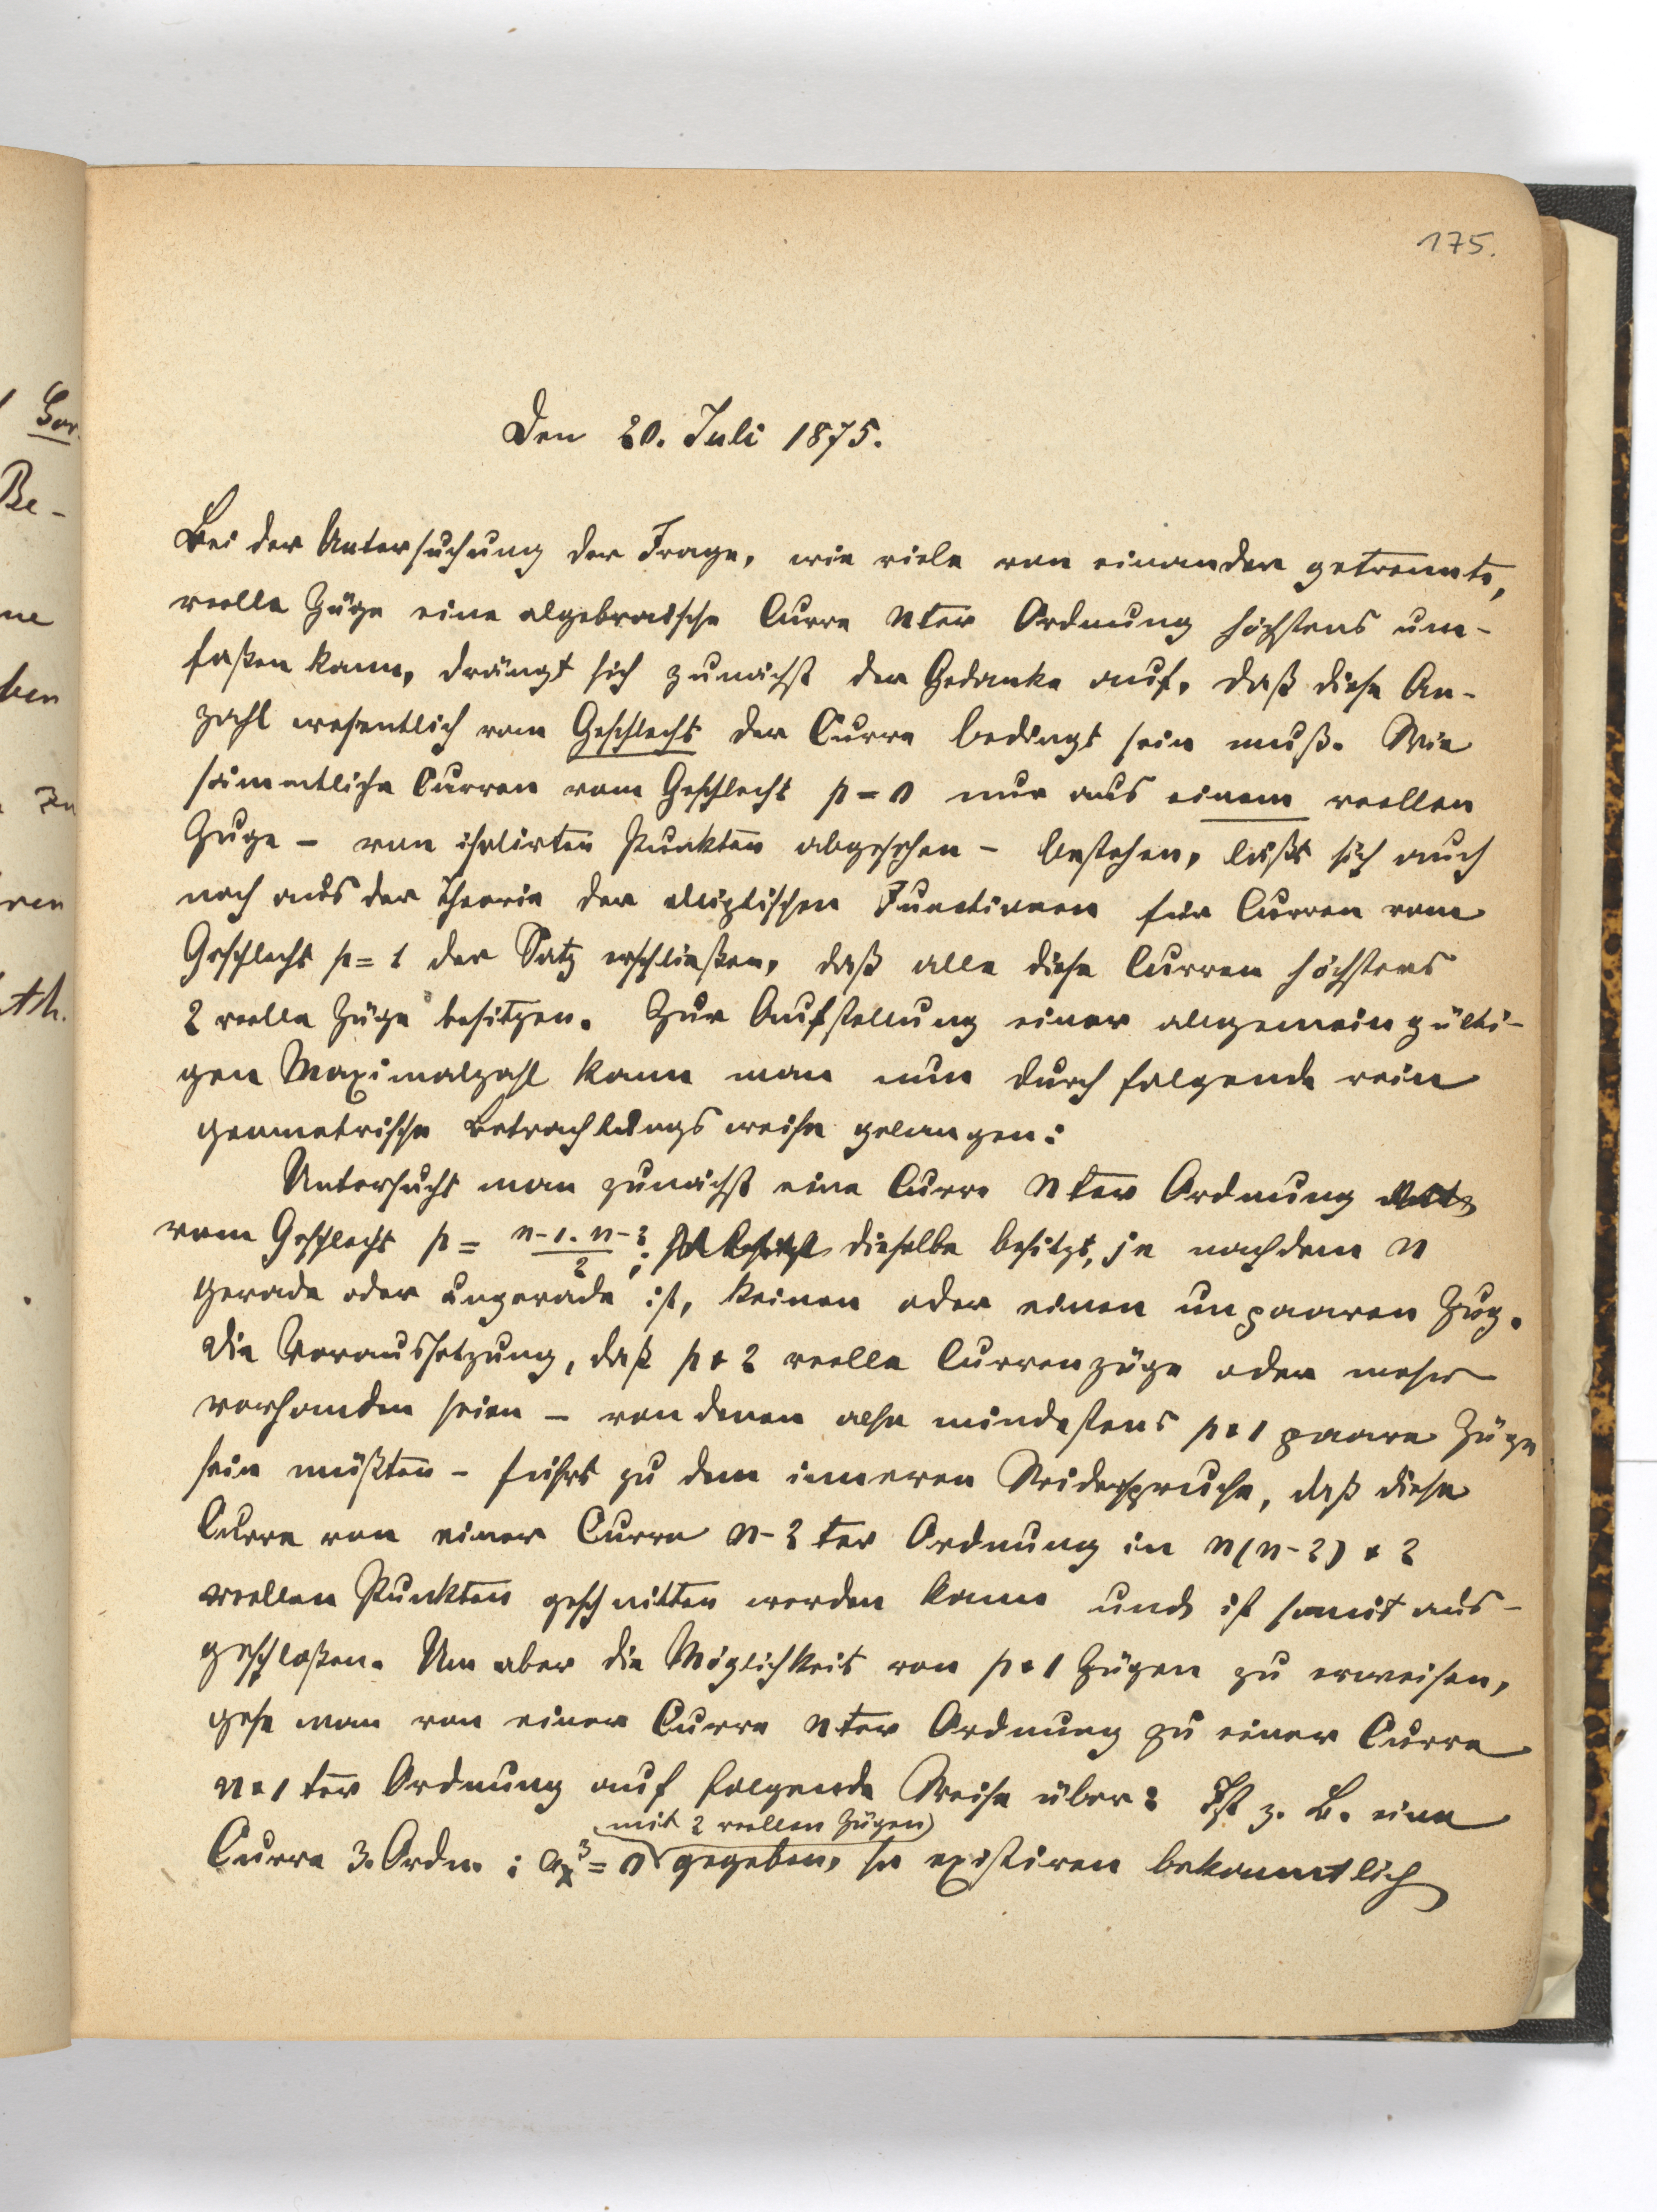 175.
Den 20. Juli 1875.
Bei der Untersuchung der Frage, wie viele von einander getrennte,
reelle Züge eine algebraische Curve nter Ordnung höchstens um-
faßen kann, drängt sich zunächst der Gedanke auf, daß diese An-
zahl wesentlich vom Geschlecht der Curve bedingt sein muß. Wie
sämmtliche Curven vom Geschlecht p = 0 nur aus einem reellen
Zuge – von isolirten Punkten abgesehen – bestehen, läßt sich auch
noch aus der Theorie der elliptischen Functionen für Curven vom
Geschlecht p = 1 der Satz erschließen, daß alle diese Curven höchstens
2 reelle Züge besitzen. Zur Aufstellung einer allgemein gülti-
gen Maximalzahl kann man nun durch folgende rein
geometrische Betrachtungsweise gelangen:
Untersucht man zunächst eine Curve nter Ordnung
vom Geschlecht p = n-1. n-2 / 2; dieselbe besitzt, je nachdem n
gerade oder ungerade ist, keinen oder einen unpaaren Zug.
Die Voraussetzung, daß p+2 reelle Curvenzüge oder mehr
vorhanden seien – von denen also mindestens p+1 paare Züge
sein müßten – führt zu dem inneren Widerspruche, daß diese
Curve von einer Curve n-2 ter Ordnung in n(n-2) + 2
reellen Punkten geschnitten werden kann und ist somit aus-
geschloßen. Um aber die Möglichkeit von p+1 Zügen zu erweisen,
gehe man von einer Curve nter Ordnung zu einer Curve
n+1 ter Ordnung auf folgende Weise über: Ist z. B. eine
mit 2 reellen Zügen
Curve 3. Ordn. : a_x^3 = 0 gegeben, so existiren bekanntlich